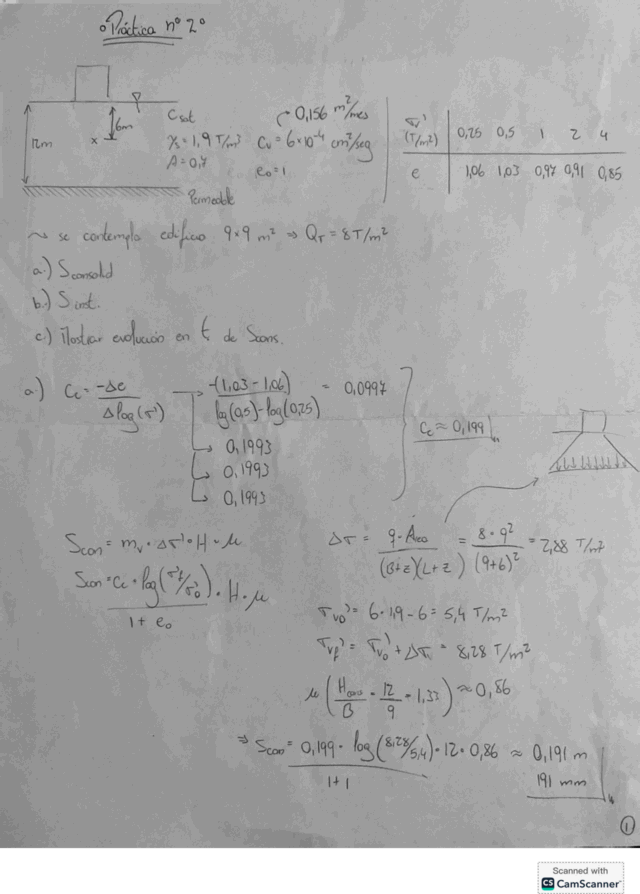 Práctica nº 2º
12m
6m
Csat
γs = 1,9 T/m³
A = 0,7
0,156 m²/mes
Cv = 6*10⁻⁴ cm²/seg
e₀ = 1
Permeable
σv' (T/m²) 0,25 0,5 1 2 4
e 1,06 1,03 0,97 0,91 0,85
~ se contempla edificio 9*9 m² ⇒ QT = 8T/m²
a.) Sconsolid
b.) Sinst.
c.) ilustrar evolución en t de Scons.
a.) Cc = -Δe / Δlog(σ') → -(1,03-1,06) / lg(0,5)-log(0,25) = 0,0997
0,1993
0,1993
0,1993
Cc ≈ 0,199
Scon = mv · Δσ' · H · μ
Scon = Cc · log(σ'f/σ'o) · H · μ / 1 + e₀
Δσ = q · Área / (B+z)(L+z) = 8 · 9² / (9+6)² = 2,88 T/m²
σv0' = 6·1,9 - 6 = 5,4 T/m²
σvf' = σv0' + Δσ = 8,28 T/m²
μ (H / B = 12 / 9 = 1,33) ≈ 0,86
⇒ Scon = 0,199 · log(8,28/5,4) · 12 · 0,86 / 1+1 ≈ 0,191 m
191 mm
1
Scanned with
CS CamScanner